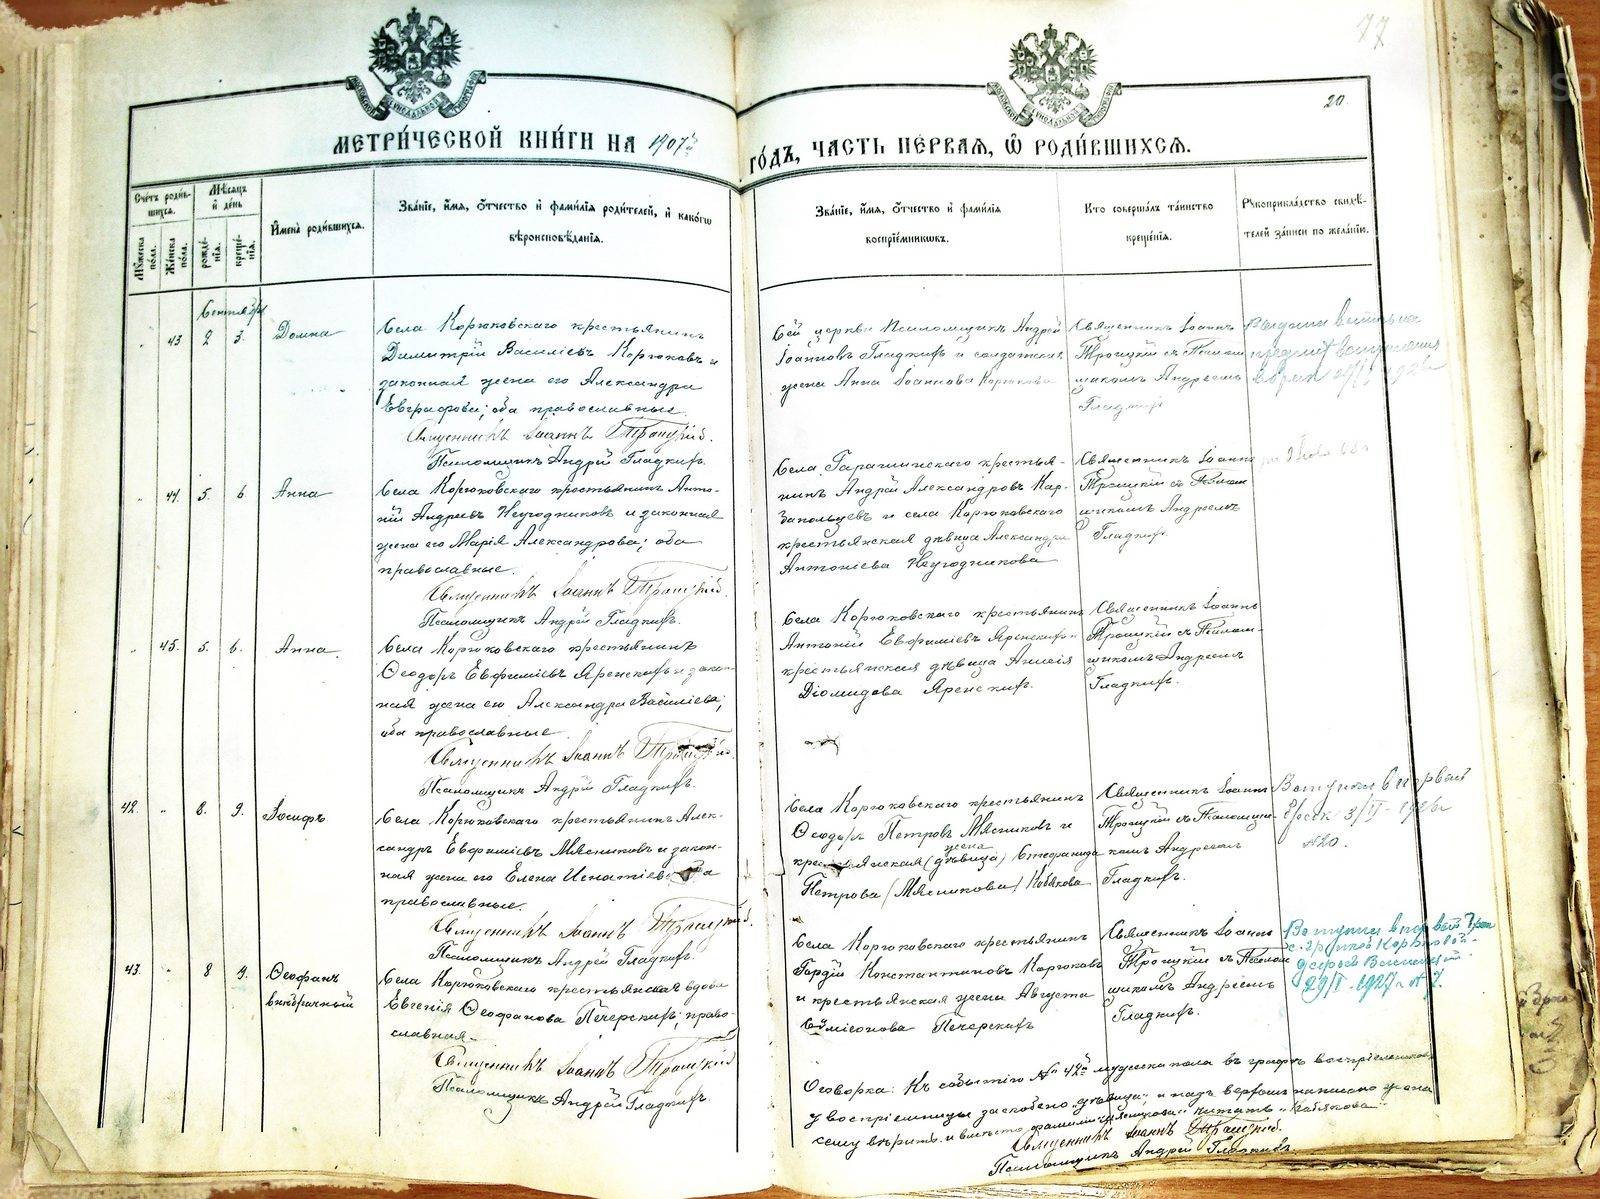 77
20.
МЕТРИ́ЧЕСКОЙ КНИ́ГИ НА 1907й
ГО́ДЪ, ЧАСТЬ ПЕ́РВАЯ, Ѿ РОДИ́ВШИХСѦ.
Сче́тъ роди́в-
шихся.
Мѣ́сяцъ
и҆ де́нь
Мꙋ́жеска по́ла.
Же́нска по́ла.
рожде́-
нїѧ.
креще́-
нїѧ.
И҆мена̀ роди́вшихсѧ.
Зва́нїе, и҆́мѧ, ѻ҆́тчество и҆ фами́лїѧ роди́телей, и҆ како́гѡ
вѣроисповѣ́данїѧ.
Зва́нїе, и҆́мѧ, ѻ҆́тчество и҆ фами́лїѧ
воспрїе́мниковъ.
Кто̀ соверша́лъ та́инство
креще́нїѧ.
Рꙋкоприкла́дство свидѣ́-
телей за́писи по жела́нїю.
Сентябрь
„ 43 2 3. Домна
Села Корюковскаго крестьянинъ
Димитрій Василіевъ Корюковъ и
законная жена его Александра
Евграфова; оба православные.
Священникъ Іоаннъ Троицкій.
Псаломщикъ Андрей Гладкихъ.
Сей церкви псаломщикъ Андрей
Іоанновъ Гладкихъ и солдатская
жена Анна Іоаннова Корюкова
Священникъ Іоаннъ
Троицкій съ Псалом
щикомъ Андреемъ
Гладкихъ
„ 44. 5. 6. Анна
Села Корюковскаго крестьянинъ Анто-
ній Андреевъ Неугодниковъ и законная
жена его Марія Александрова; оба
православные.
Священникъ Іоаннъ Троицкій.
Псаломщикъ Андрей Гладкихъ.
крестья-
нинъ Андрей Александровъ Кар-
запольцевъ и села Корюковскаго
крестьянская дѣвица Александра
Антоніева Неугодникова
Священникъ Іоаннъ
Троицкій съ Псалом
щикомъ Андреемъ
Гладкихъ
„ 45. 5. 6. Анна
Села Корюковскаго крестьянинъ
Ѳеодоръ Евфиміевъ Яренскихъ и закон-
ная жена его Александра Василіева;
оба православные
Священникъ Іоаннъ Троицкій.
Псаломщикъ Андрей Гладкихъ.
Села Корюковскаго крестьянинъ
Антоній Евфиміевъ Яренскихъ и
крестьянская дѣвица Анисія
Діомидова Яренскихъ.
Священникъ Іоаннъ
Троицкій съ Псалом-
щикомъ Андреемъ
Гладкихъ.
42. „ 8. 9. Іосифъ
Села Корюковскаго крестьянинъ Алек-
сандръ Евфиміевъ Мясниковъ и закон-
ная жена его Елена Игнатіева
православные.
Священникъ Іоаннъ Троицкій.
Псаломщикъ Андрей Гладкихъ.
Села Корюковскаго крестьянинъ
Ѳеодоръ Петровъ Мясниковъ и
жена
крестьянская (дѣвица) Стефанида
Петрова (Мясникова) Кобякова
Священникъ Іоаннъ
Троицкій съ Псаломщи-
комъ Андреемъ
Гладкихъ.
43. „ 8 9. Ѳеофанъ
внебрачный
Села Корюковскаго крестьянская вдова
Евгенія Ѳеофанова Печерскихъ; право-
славная.
Священникъ Іоаннъ Троицкій
Псаломщикъ Андрей Гладкихъ.
Села Корюковскаго крестьянинъ
Гордій Константиновъ Корюковъ
и крестьянская жена Августа
Печерскихъ
Священникъ Іоаннъ
Троицкій съ Псалом
щикомъ Андреемъ
Гладкихъ.
29/I-1927 г № 7.
Оговорка: Къ событію № 42й мужеска пола въ графѣ воспріемниковъ
у воспріемницы заскоблено „дѣвица“, и надъ верхомъ написано жена
сему вѣрить и вмѣсто фамиліи „Мясникова“ читать „Кобякова“
Священникъ Іоаннъ Троицкій.
Псаломщикъ Андрей Гладкихъ